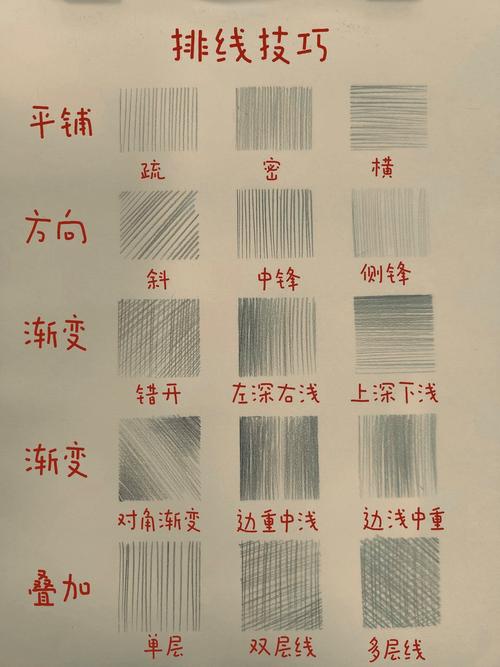 排线技巧
平铺
疏 密 横
方向
斜 中锋 侧锋
渐变
错开 左深右浅 上深下浅
渐变
对角渐变 边重中浅 边浅中重
叠加
单层 双层线 多层线